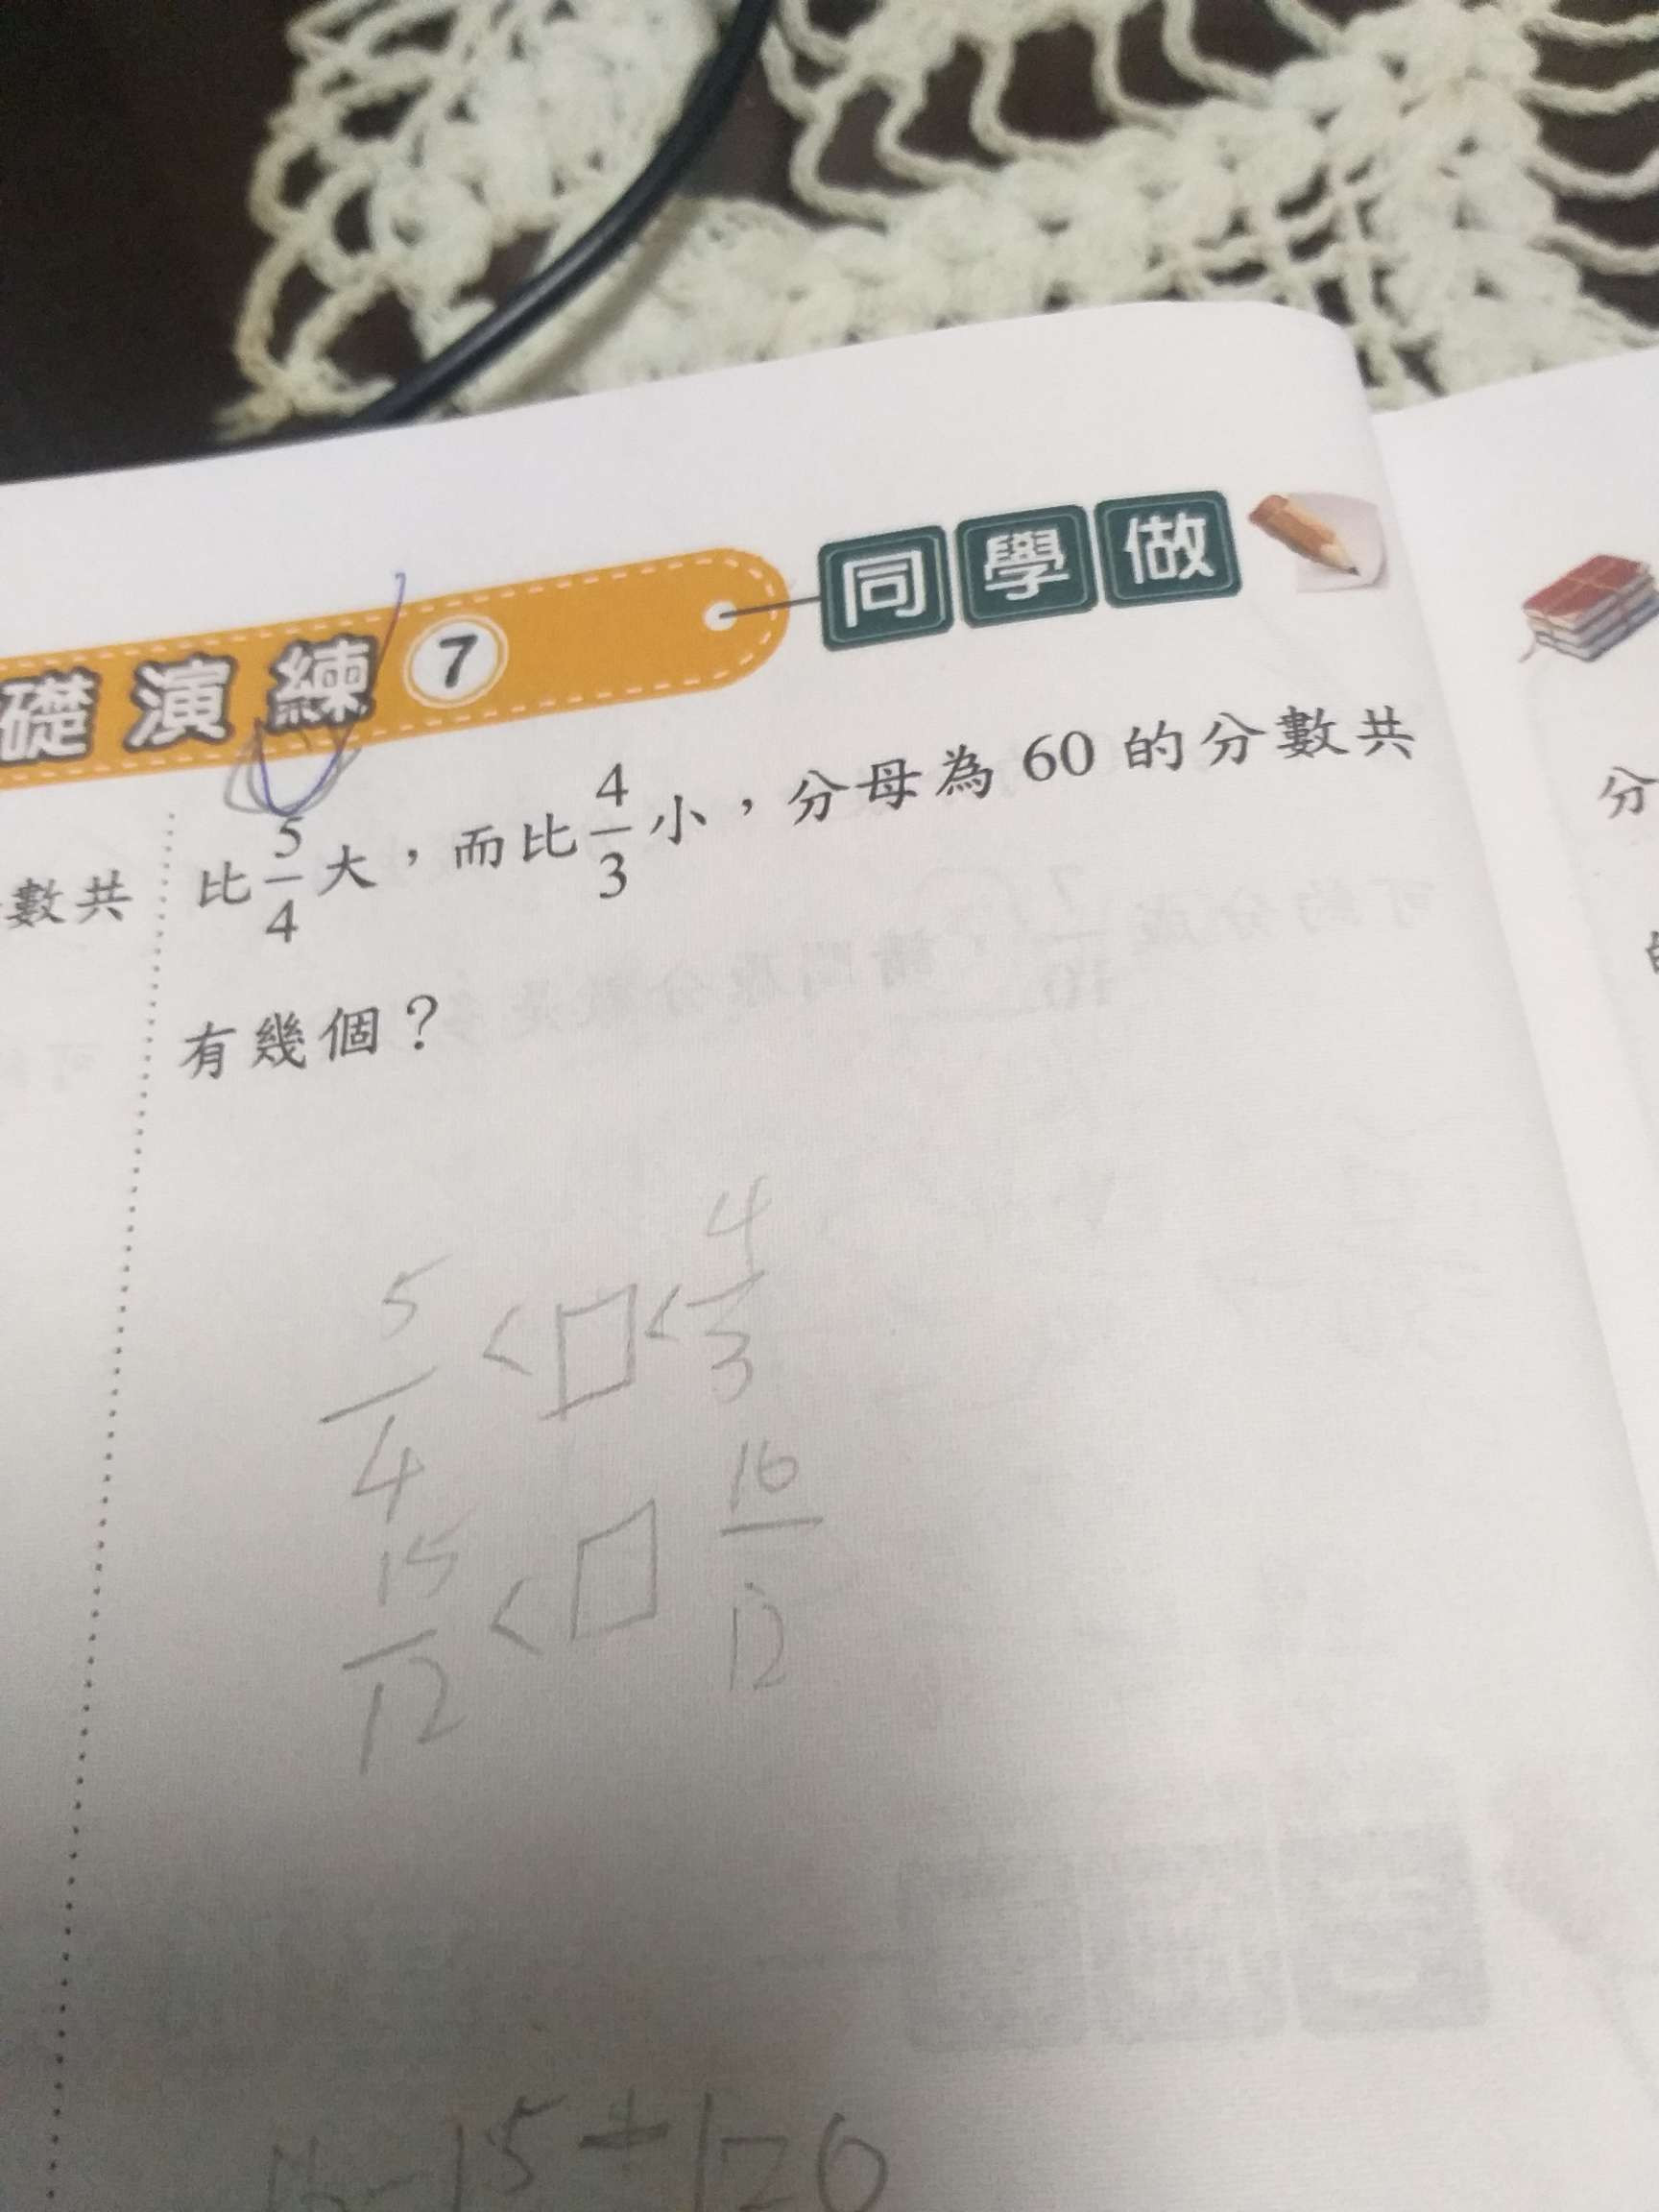 同學做
礎演練 7
比 5/4 大，而比 4/3 小，分母為 60 的分數共
有幾個？
數共
分
5/4 < □ < 4/3
15/12 < □ 16/12